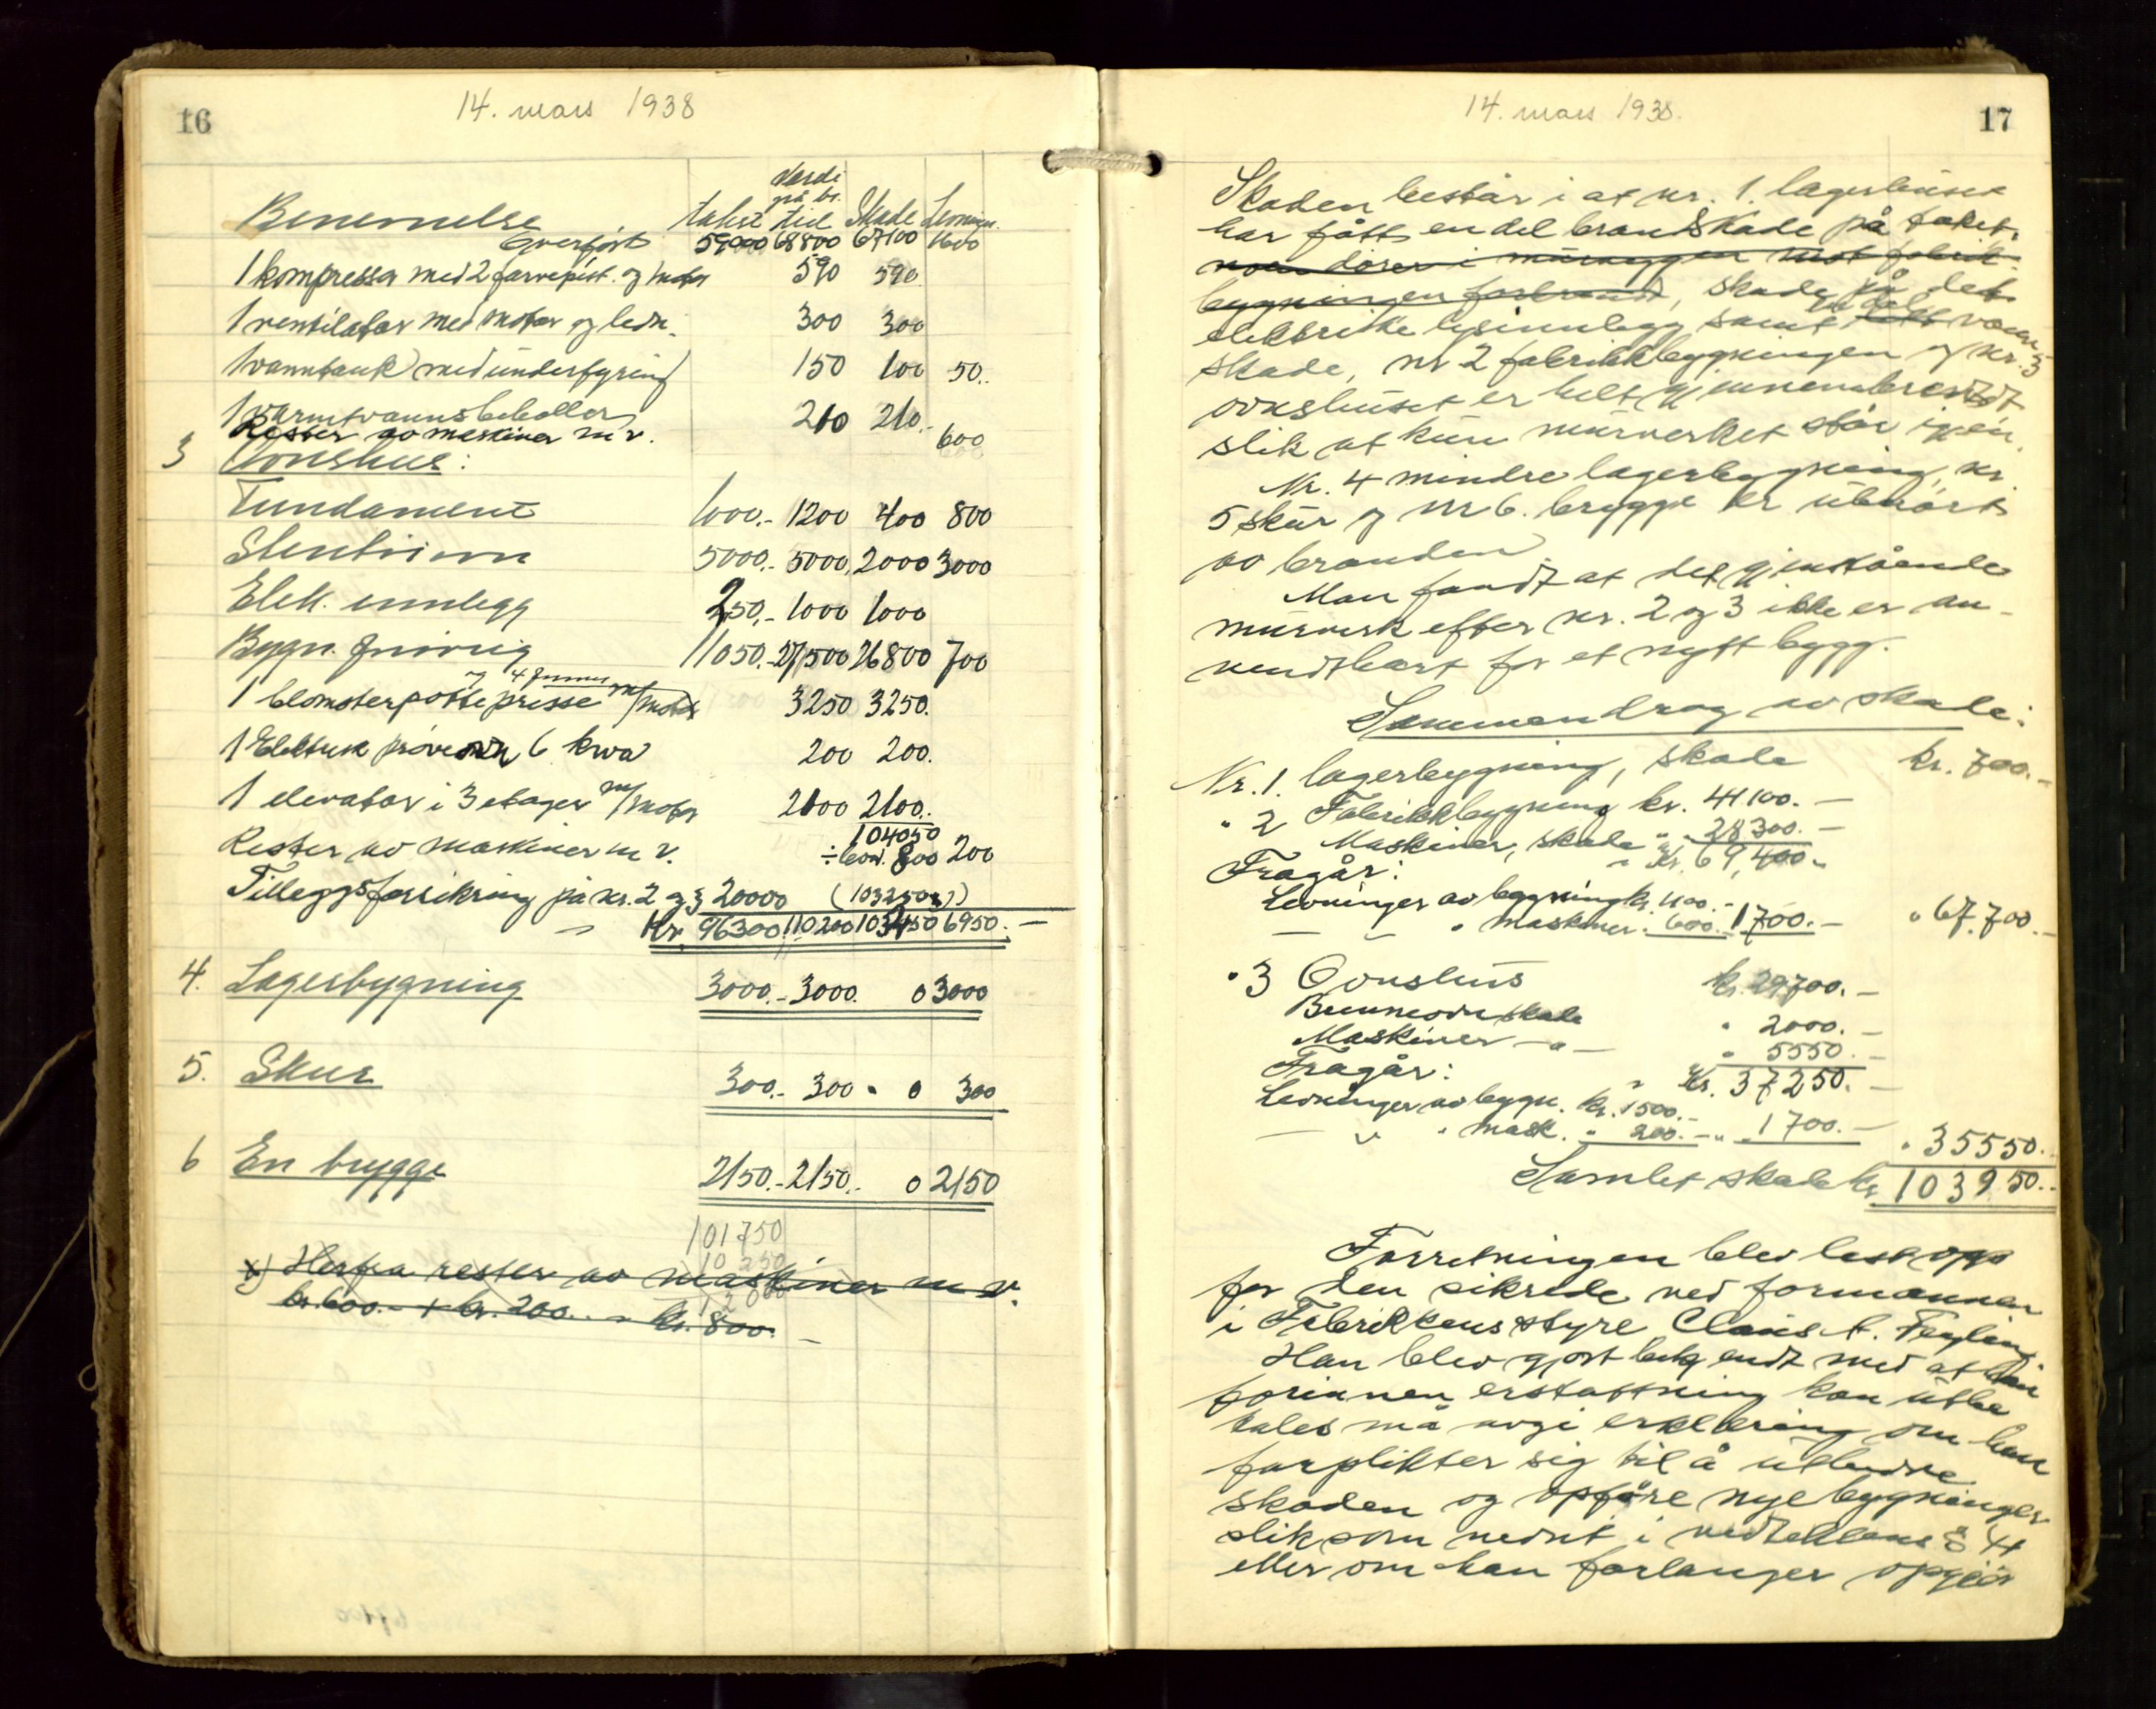 16
14. mars 1938
Benevnelse takst Verdi på br. tid Skade Levning.
Overført 59000 68800 67100 1600
1 kompressor med 2 farvepist. og motor 590 590.
1 ventilator med motor og ledn. 300 300
1 vanntank med underfyring 150 100 50.
1 varmtvannsbeholler 210 210.-
Rester av maskiner m v. 600
3 Ovnshus:
Fundament 1000.- 1200 400 800
5000.- 5000. 2000 3000
Elek. innlegg 250.- 1000 1000
Bygn. forøvrig 11050.- 27500 26800 700
1 blomsterpotte presse og 4 former m/motor 3250 3250.
1 Elektrisk prøveovn 6 kwa 200 200.
1 elevator i 3 etager m/motor 2100 2100..
104050
Rester av maskiner m v. ÷ levn. 800 200
Tilleggsforsikring på nr. 2 og 3 20000 (103250 x))
Kr. 96300 110200 103450 6950.-
4. Lagerbygning 3000.- 3000. 0 3000
5. Skur 300.- 300 " 0 300
6 En brygge 2150.- 2150.- 0 2150
101750
10 250
x) Herfra rester av maskiner m v.
kr. 600.- + kr. 200.. = kr. 800.-
17
14. mars 1938.
Skaden består i at nr. 1. lagerhuset
har fått en del brandskade på taket,
noen dører i murveggen mot fabrik-
bygningen forbrent, skade på det
elektriske lysinnlegg samt en del vann-
skade, nr 2 fabrikkbygningen og nr. 3
ovnshuset er helt gjennembrendt
slik at kun murverket står igjen.
Nr. 4 mindre lagerbygning, nr.
5 skur og nr 6. brygge er uberørt
av branden
Man fandt at det gjenstående
murverk efter nr. 2 og 3 ikke er an-
vendtbart for et nytt bygg.
Sammendrag av skade:
Nr. 1. lagerbygning, skade kr. 700.-
" 2 Fabrikkbygning kr. 41100.-
Maskiner, skade " 28300.-
Fragår: Kr. 69,400.-
Levninger av bygning kr. 1100.-
— " — " maskiner " 600.- 1700.- " 67.700.-
" 3 Ovnshus kr. 29700.-
Brennovn skade " 2000.-
Maskiner — " — " 5550.-
Fragår: Kr. 37250.-
Levninger av bygn. kr. 1500.-
— " — " mask. " 200.- " 1700.- " 35550.-
Samlet skade kr. 103950.-
Forretningen blev lest opp
for den sikrede ved formannen
i Fabrikkens styre Claus t.
Han blev gjort bekjendt med at han
forinnen erstattning kan utbe
tales må avgi erklæring om han
forplikter sig til å utbedre
skaden og opføre nye bygninger
slik som nevnt i vedtektene § 41
eller om han forlanger opgjør